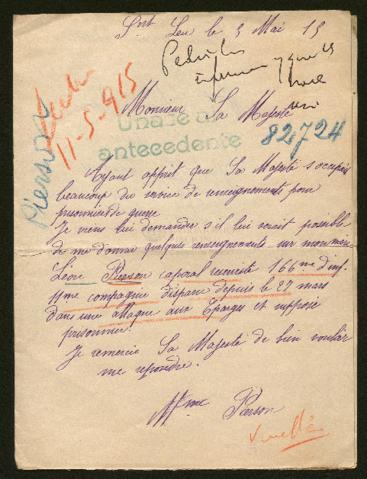 St Leu le 3 Mai 15
Pedir los
informes
Pierson
11-5-915
Monsieur Sa Majesté
Unase a
antecedente
82724
Ayant apprit que Sa Majesté s'occupait
beaucoup du service de renseignements pour
prisonniers de guerre
Je viens lui demander s'il lui serait possible
de me donner quelques renseignements sur mon mari
Léon Pierson caporal 166me d'inf
me compagnie disparu depuis le 27 mars
dans une attaque aux Eparges et supposé
prisonnier.
Je remercie Sa Majesté de bien vouloir
me repondre.
Mme Pierson